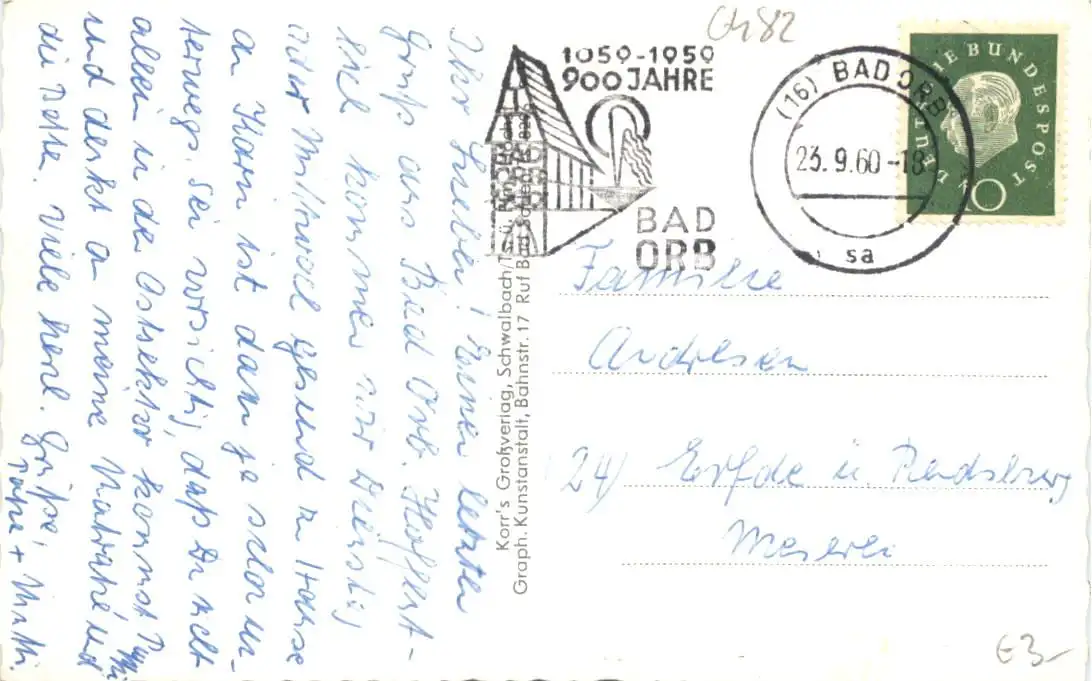 Ihr Lieben! Einen letzten
Gruß aus Bad Orb. Hoffent-
lich kommen wir Dienstag
oder Mittwoch gesund zu Hause
an Karin ist dann ja schon un-
terwegs. Sei vorsichtig, daß Du nicht
allein in den Ostsektor kommst
und denkt an meine und
die Bette. Viele herzl. Grüße
+ Mutti.
0482
1059-1959
900 JAHRE
BAD
ORB
(16) BAD ORB
23.9.60-18
sa
DEUTSCHE BUNDESPOST
10
Korr's Großverlag, Schwalbach/T
Graph. Kunstanstalt, Bahnstr. 17 Ruf Bad Soden
Familie
Andresen
(24) Erfde ü. Rendsburg
Meierei
€3-